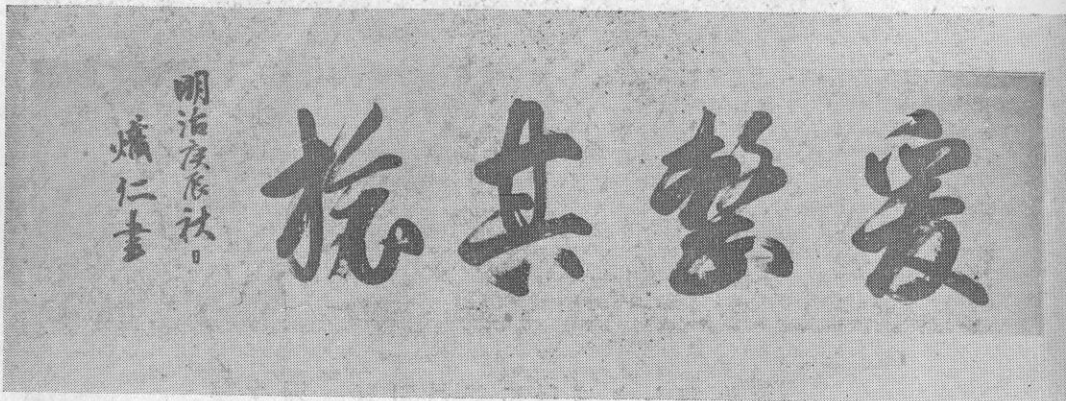 爰整其旅
明治庚辰秋日
熾仁書